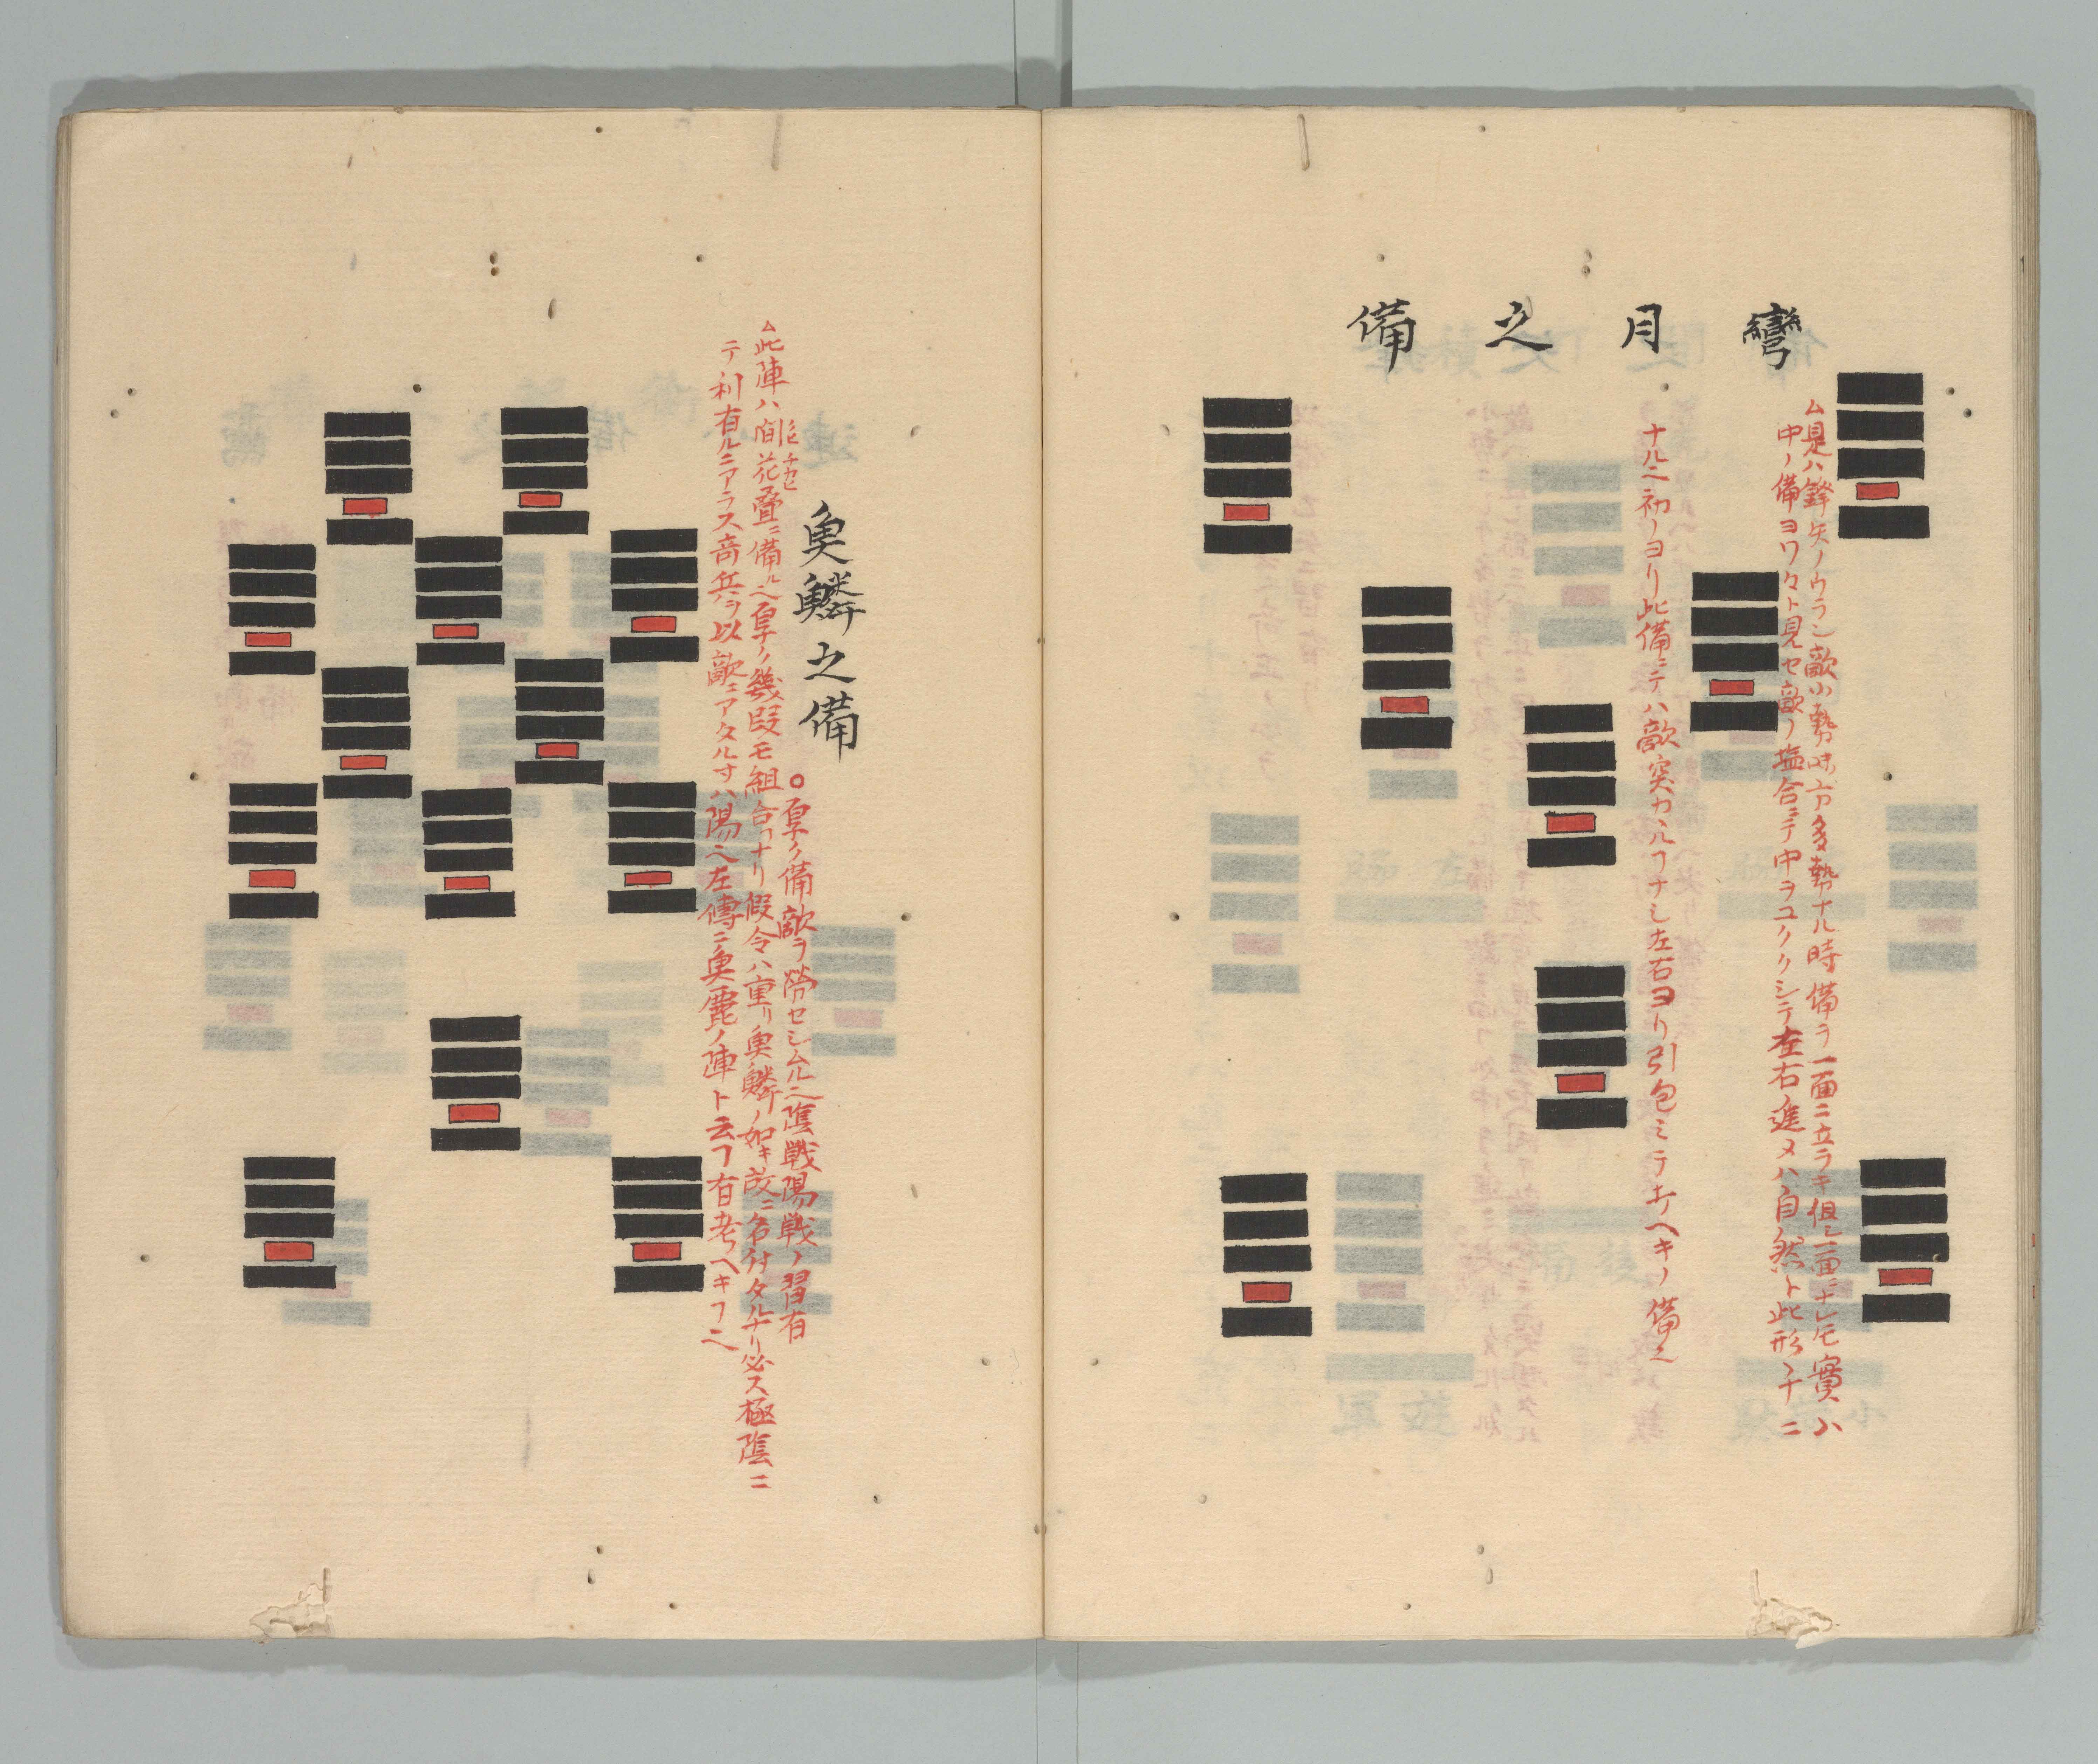 彎月之備
ム是ハ鋒矢ノウラ也敵小勢味方多勢ナル時備ヲ一面ニ立ヲキ但シ一面ニナレ𪜈實ハ
中ノ備ヨワ々ト見セ敵ノ塩合ニテ中ヲユククシテ左右ノ進メハ自然ト此形ニナニ
ナル也初ノヨリ此備ニテハ敵突カヽルフナシ左右ヨリ引包ミテ立ヘキノ備也
魚鱗之備
○厚ノ備敵ヲ勞セシムル也陰戦陽戦ノ習有
ム此陣ハ間花疊ニ備ル也厚ノ幾段モ組合フナリ假令ハ重リ魚鱗ノ如キ故ニ名付タルナリ必ス極陰ニ
テ利有ルニアラス奇兵ヲ以敵ニアタルすハ陽也左傳ニ魚麗ノ陣ト云フ有考ヘキフ也